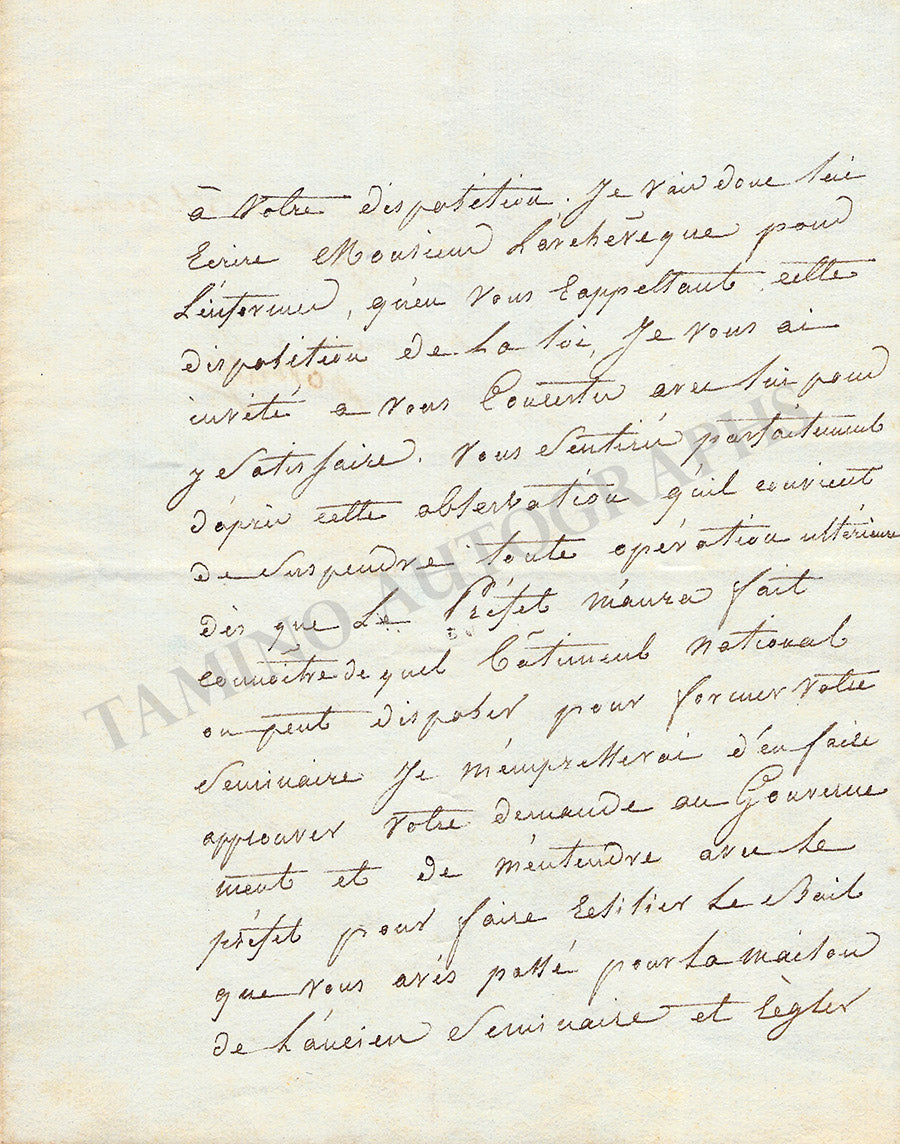 à votre disposition. Je vais donc lui
Ecrire Monsieur L'archevêque pour
L'informer, qu'en vous rappellant cette
disposition de la loi, Je vous ai
invité a vous Concerter avec lui pour
y satisfaire. Vous sentirés parfaitement
d'après cette observation qu'il convient
de suspendre toute opération ultérieure
dès que Le Préfet m'aura fait
connoitre de quel bâtiment national
on peut disposer pour former votre
Seminaire Je m'empresserai d'en faire
approuver votre demande au Gouverne
ment et de m'entendre avec le
préfet pour faire resilier le Bail
que vous avés passé pour La maison
de L'ancien Seminaire et règler
TAMINO AUTOGRAPHS